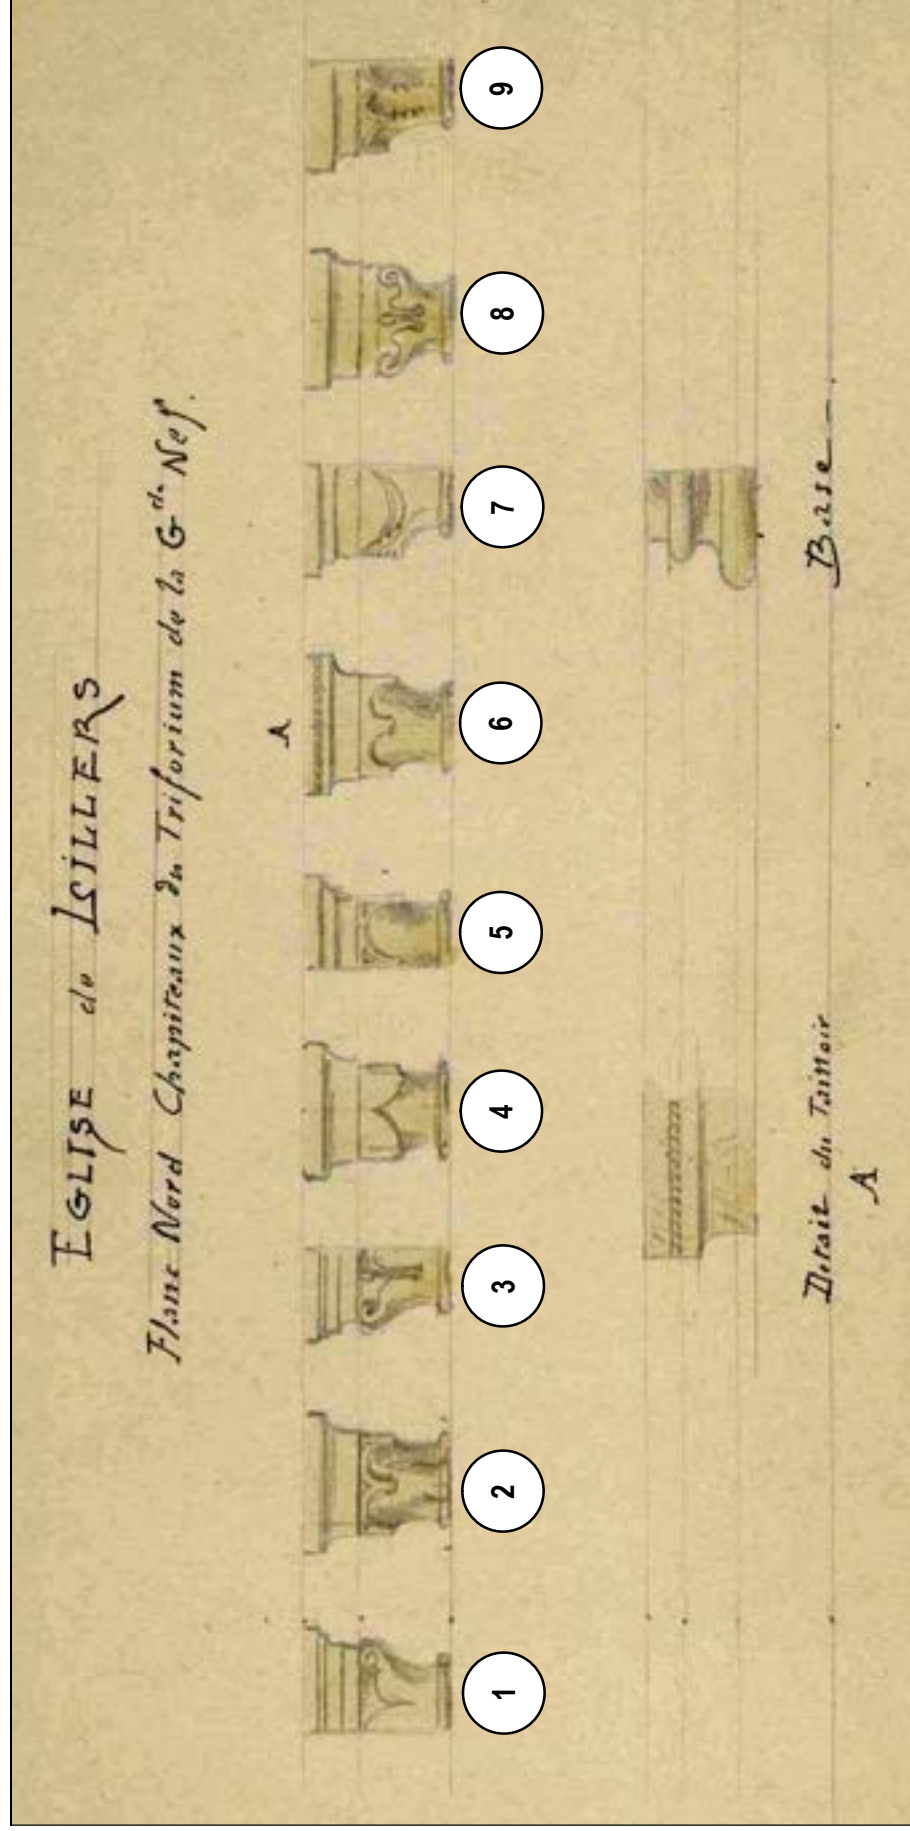 EGLISE de LILLERS
Flanc Nord Chapiteaux du Triforium de la Gde Nef.
A
1 2 3 4 5 6 7 8 9
Détail du Tailloir
A
Base